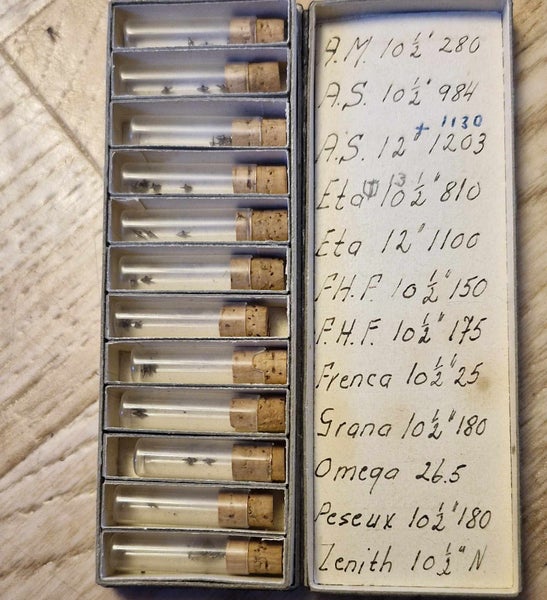 A.M. 10½" 280
A.S. 10½" 984
+ 1130
A.S. 12" 1203
Eta 10½" 810
Eta 12" 1100
F.H.F. 10½" 150
F.H.F. 10½" 175
Frenca 10½" 25
Grana 10½" 180
Omega 26.5
Peseux 10½" 180
Zenith 10½" N